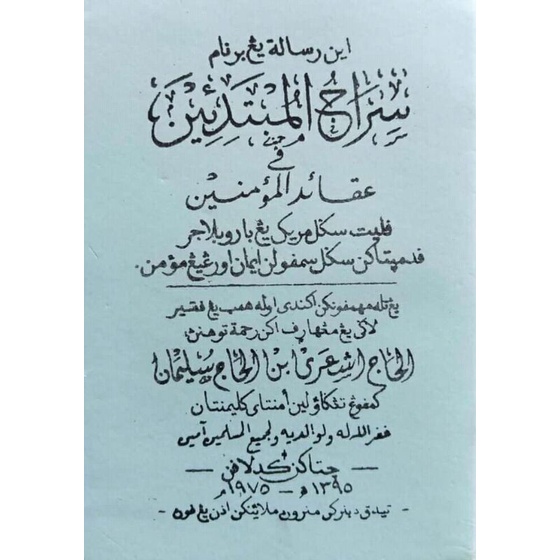 اين رسالة يڠ برنام
سِرَاجُ الْمُبْتَدِئِيْنَ
في
عقائد المؤمنين
ڤليت سڬل مريكئيڠ بارو بلاجر
ڤد مپتاكن سڬل سمڤولن ايمان اورڠيڠ مؤمن.
يڠ تله مهمڤونكن اكندي اوله همب يڠ فقير
لاڬي يڠ مڠهارڤ اكن رحمة توهنڽ
الحاج اشعري ابن الحاج سليمان
كمڤوڠ تڠكاولين امنتاي كليمنتان
غفر الله له ولوالديه ولجميع المسلمين آمين
— چتاكن كدلاڤن —
١٣٩٥ ه‍ – ١٩٧٥ م
- تيدق دبنركن منيرو ملاءينكن اذن يڠ ڤون -